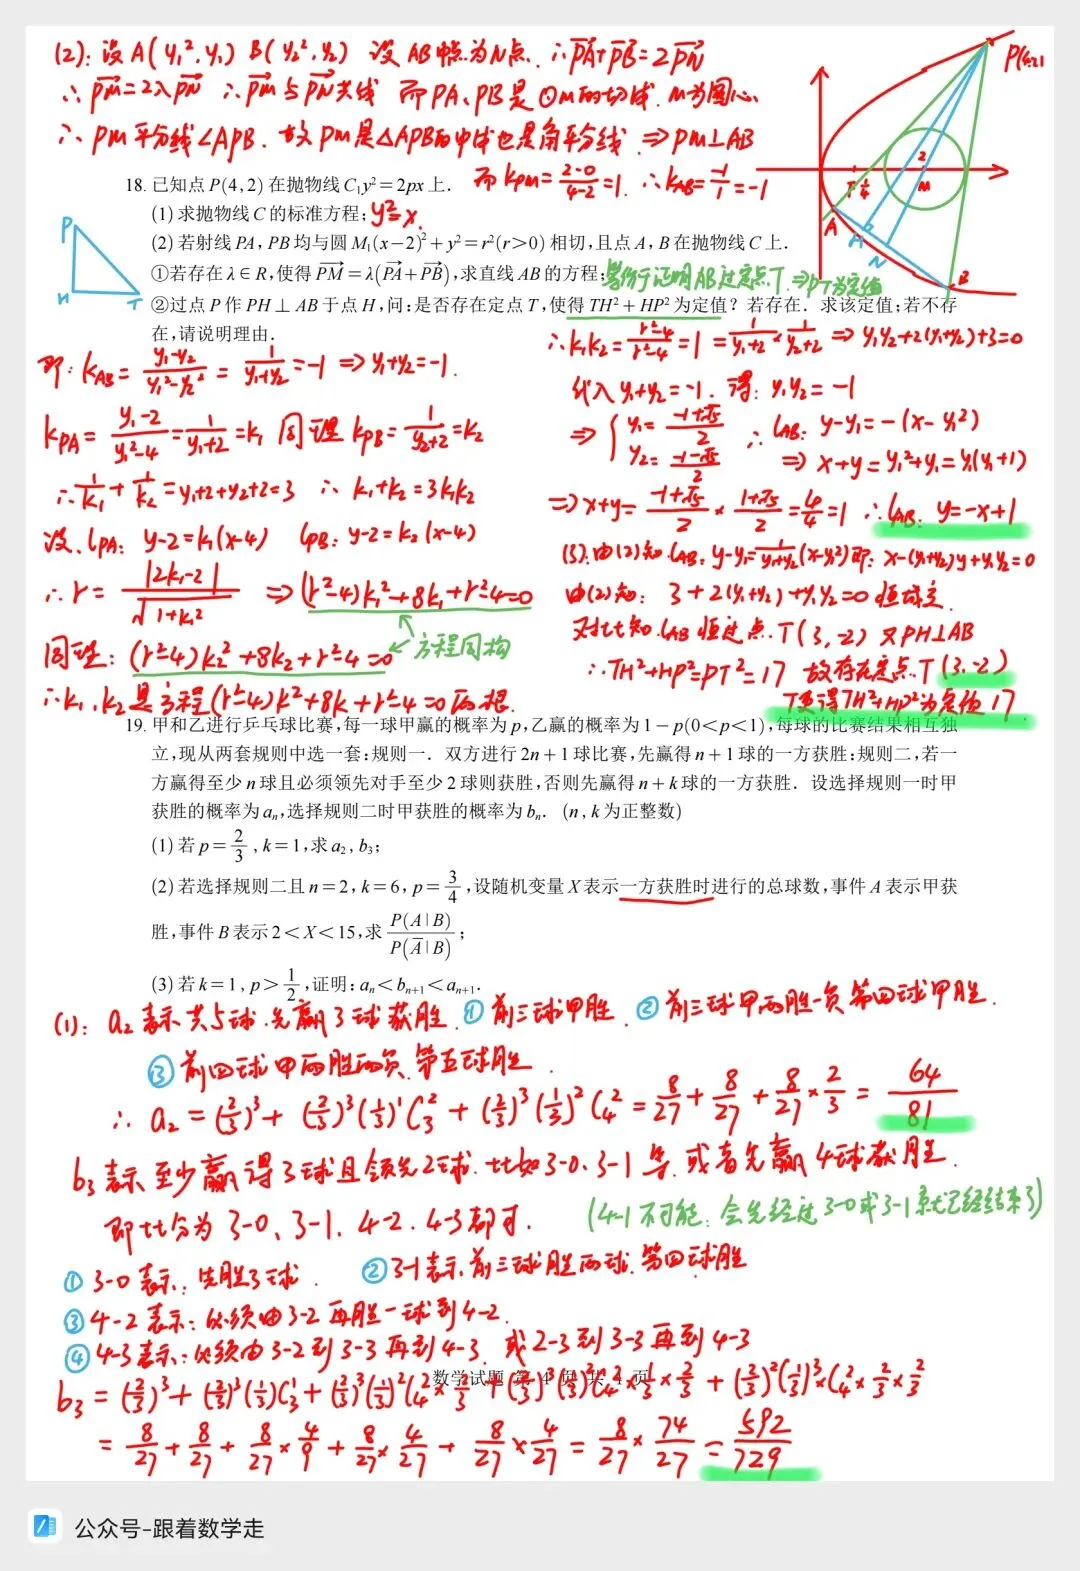 (2): 设 A(y₁², y₁) B(y₂², y₂) 设 AB中点为N点. ∴ PA+PB=2PN
∴ PM=2λPN ∴ PM与PN共线 而PA、PB是⊙M的切线. M为圆心
∴ PM平分线∠APB. 故PM是△APB的中线也是角平分线 ⇒ PM⊥AB
18. 已知点 P(4,2) 在抛物线 C₁y²=2px 上. 而 kPM=2-0/4-2=1. ∴ kAB=-1/1=-1
(1) 求抛物线 C 的标准方程; y²=x.
(2) 若射线 PA, PB 均与圆 M₁(x−2)²+y²=r²(r>0) 相切,且点 A, B 在抛物线 C 上.
①若存在 λ∈R,使得 PM=λ(PA+PB),求直线 AB 的方程; 等价于证明AB过定点T. ⇒PT为定值
②过点 P 作 PH⊥AB 于点 H,问:是否存在定点 T,使得 TH²+HP² 为定值? 若存在. 求该定值;若不存
在,请说明理由.
P
H
T
P(4,2)
2
M
F
1/4
A
H
N
B
即: kAB = y₁-y₂/y₁²-y₂² = 1/y₁+y₂ = -1 ⇒ y₁+y₂=-1.
kPA = y₁-2/y₁²-4 = 1/y₁+2 = k₁ 同理 kPB = 1/y₂+2 = k₂
∴ 1/k₁ + 1/k₂ = y₁+2+y₂+2=3 ∴ k₁+k₂=3k₁k₂
设. lPA: y-2=k₁(x-4) lPB: y-2=k₂(x-4)
∴ r = |2k₁-2|/√1+k₁² ⇒ (r²-4)k₁²+8k₁+r²-4=0
方程同构
同理: (r²-4)k₂²+8k₂+r²-4=0
∴ k₁, k₂是方程(r²-4)k²+8k+r²-4=0两根.
∴ k₁k₂ = r²-4/r²-4 = 1 = 1/y₁+2 × 1/y₂+2 ⇒ y₁y₂+2(y₁+y₂)+3=0
代入 y₁+y₂=-1. 得: y₁y₂=-1
⇒ { y₁=-1+√5/2 ∴ lAB: y-y₁=-(x-y₁²)
y₂=-1-√5/2 ⇒ x+y=y₁²+y₁=y₁(y₁+1)
⇒ x+y=-1+√5/2 × 1+√5/2 = 4/4 = 1 ∴ lAB: y=-x+1
(3). 由(2)知 lAB: y-y₁=1/y₁+y₂(x-y₁²) 即: x-(y₁+y₂)y+y₁y₂=0
由(2)知: 3+2(y₁+y₂)+y₁y₂=0 恒成立.
对比知 lAB恒过点. T(3,-2) 又PH⊥AB
∴ TH²+HP²=PT²=17 故存在定点T(3,-2)
T使得TH²+HP²为定值17
19. 甲和乙进行乒乓球比赛,每一球甲赢的概率为 p,乙赢的概率为 1−p(0<p<1),每球的比赛结果相互独
立,现从两套规则中选一套:规则一. 双方进行 2n+1 球比赛,先赢得 n+1 球的一方获胜:规则二,若一
方赢得至少 n 球且必须领先对手至少 2 球则获胜,否则先赢得 n+k 球的一方获胜. 设选择规则一时甲
获胜的概率为 aₙ,选择规则二时甲获胜的概率为 bₙ. (n, k 为正整数)
(1) 若 p=2/3, k=1,求 a₂, b₃;
(2) 若选择规则二且 n=2, k=6, p=3/4,设随机变量 X 表示一方获胜时进行的总球数,事件 A 表示甲获
胜,事件 B 表示 2<X<15,求 P(A|B)/P(A̅|B);
(3) 若 k=1, p>1/2,证明: aₙ<bₙ₊₁<aₙ₊₁.
(1): a₂表示共5球.先赢3球获胜. ①前三球甲胜. ②前三球甲两胜一负.第四球甲胜.
③前四球甲两胜两负.第五球胜
∴ a₂ = (2/3)³ + (2/3)³(1/3)¹C₃² + (2/3)³(1/3)²C₄² = 8/27 + 8/27 + 8/27×2/3 = 64/81
b₃表示至少赢得3球且领先2球.比如3-0、3-1等.或者先赢4球获胜.
即比分为3-0、3-1、4-2、4-3都可. (4-1不可能:会先经过3-0或3-1就已经结束了)
①3-0表示:先胜3球. ②3-1表示.前三球胜两球.第四球胜
③4-2表示:必须由3-2再胜一球到4-2.
④4-3表示:必须由3-2到3-3再到4-3. 或2-3到3-3再到4-3
数学试题 第 4 页 共 4 页
b₃ = (2/3)³ + (2/3)³(1/3)C₃¹ + (2/3)³(1/3)²C₄²×2/3 + (2/3)³(1/3)²C₄²×1/3×2/3 + (2/3)²(1/3)³×C₄²×2/3×2/3
= 8/27 + 8/27 + 8/27×4/9 + 8/27×4/27 + 8/27×4/27 = 8/27×74/27 = 592/729
公众号-跟着数学走